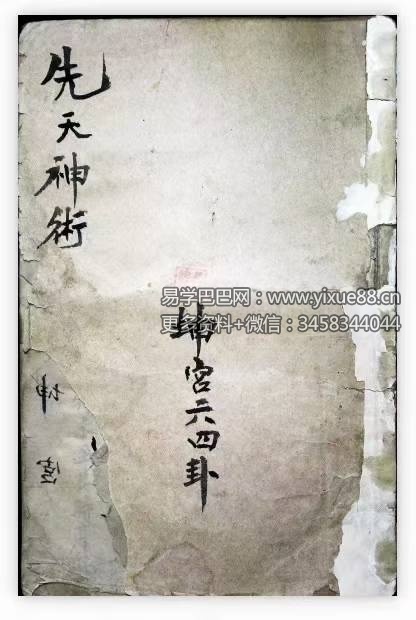 先天神術
易学巴巴网：www.yixue88.cn
更多资料+微信：3458344044
坤宮六四卦
坤宮